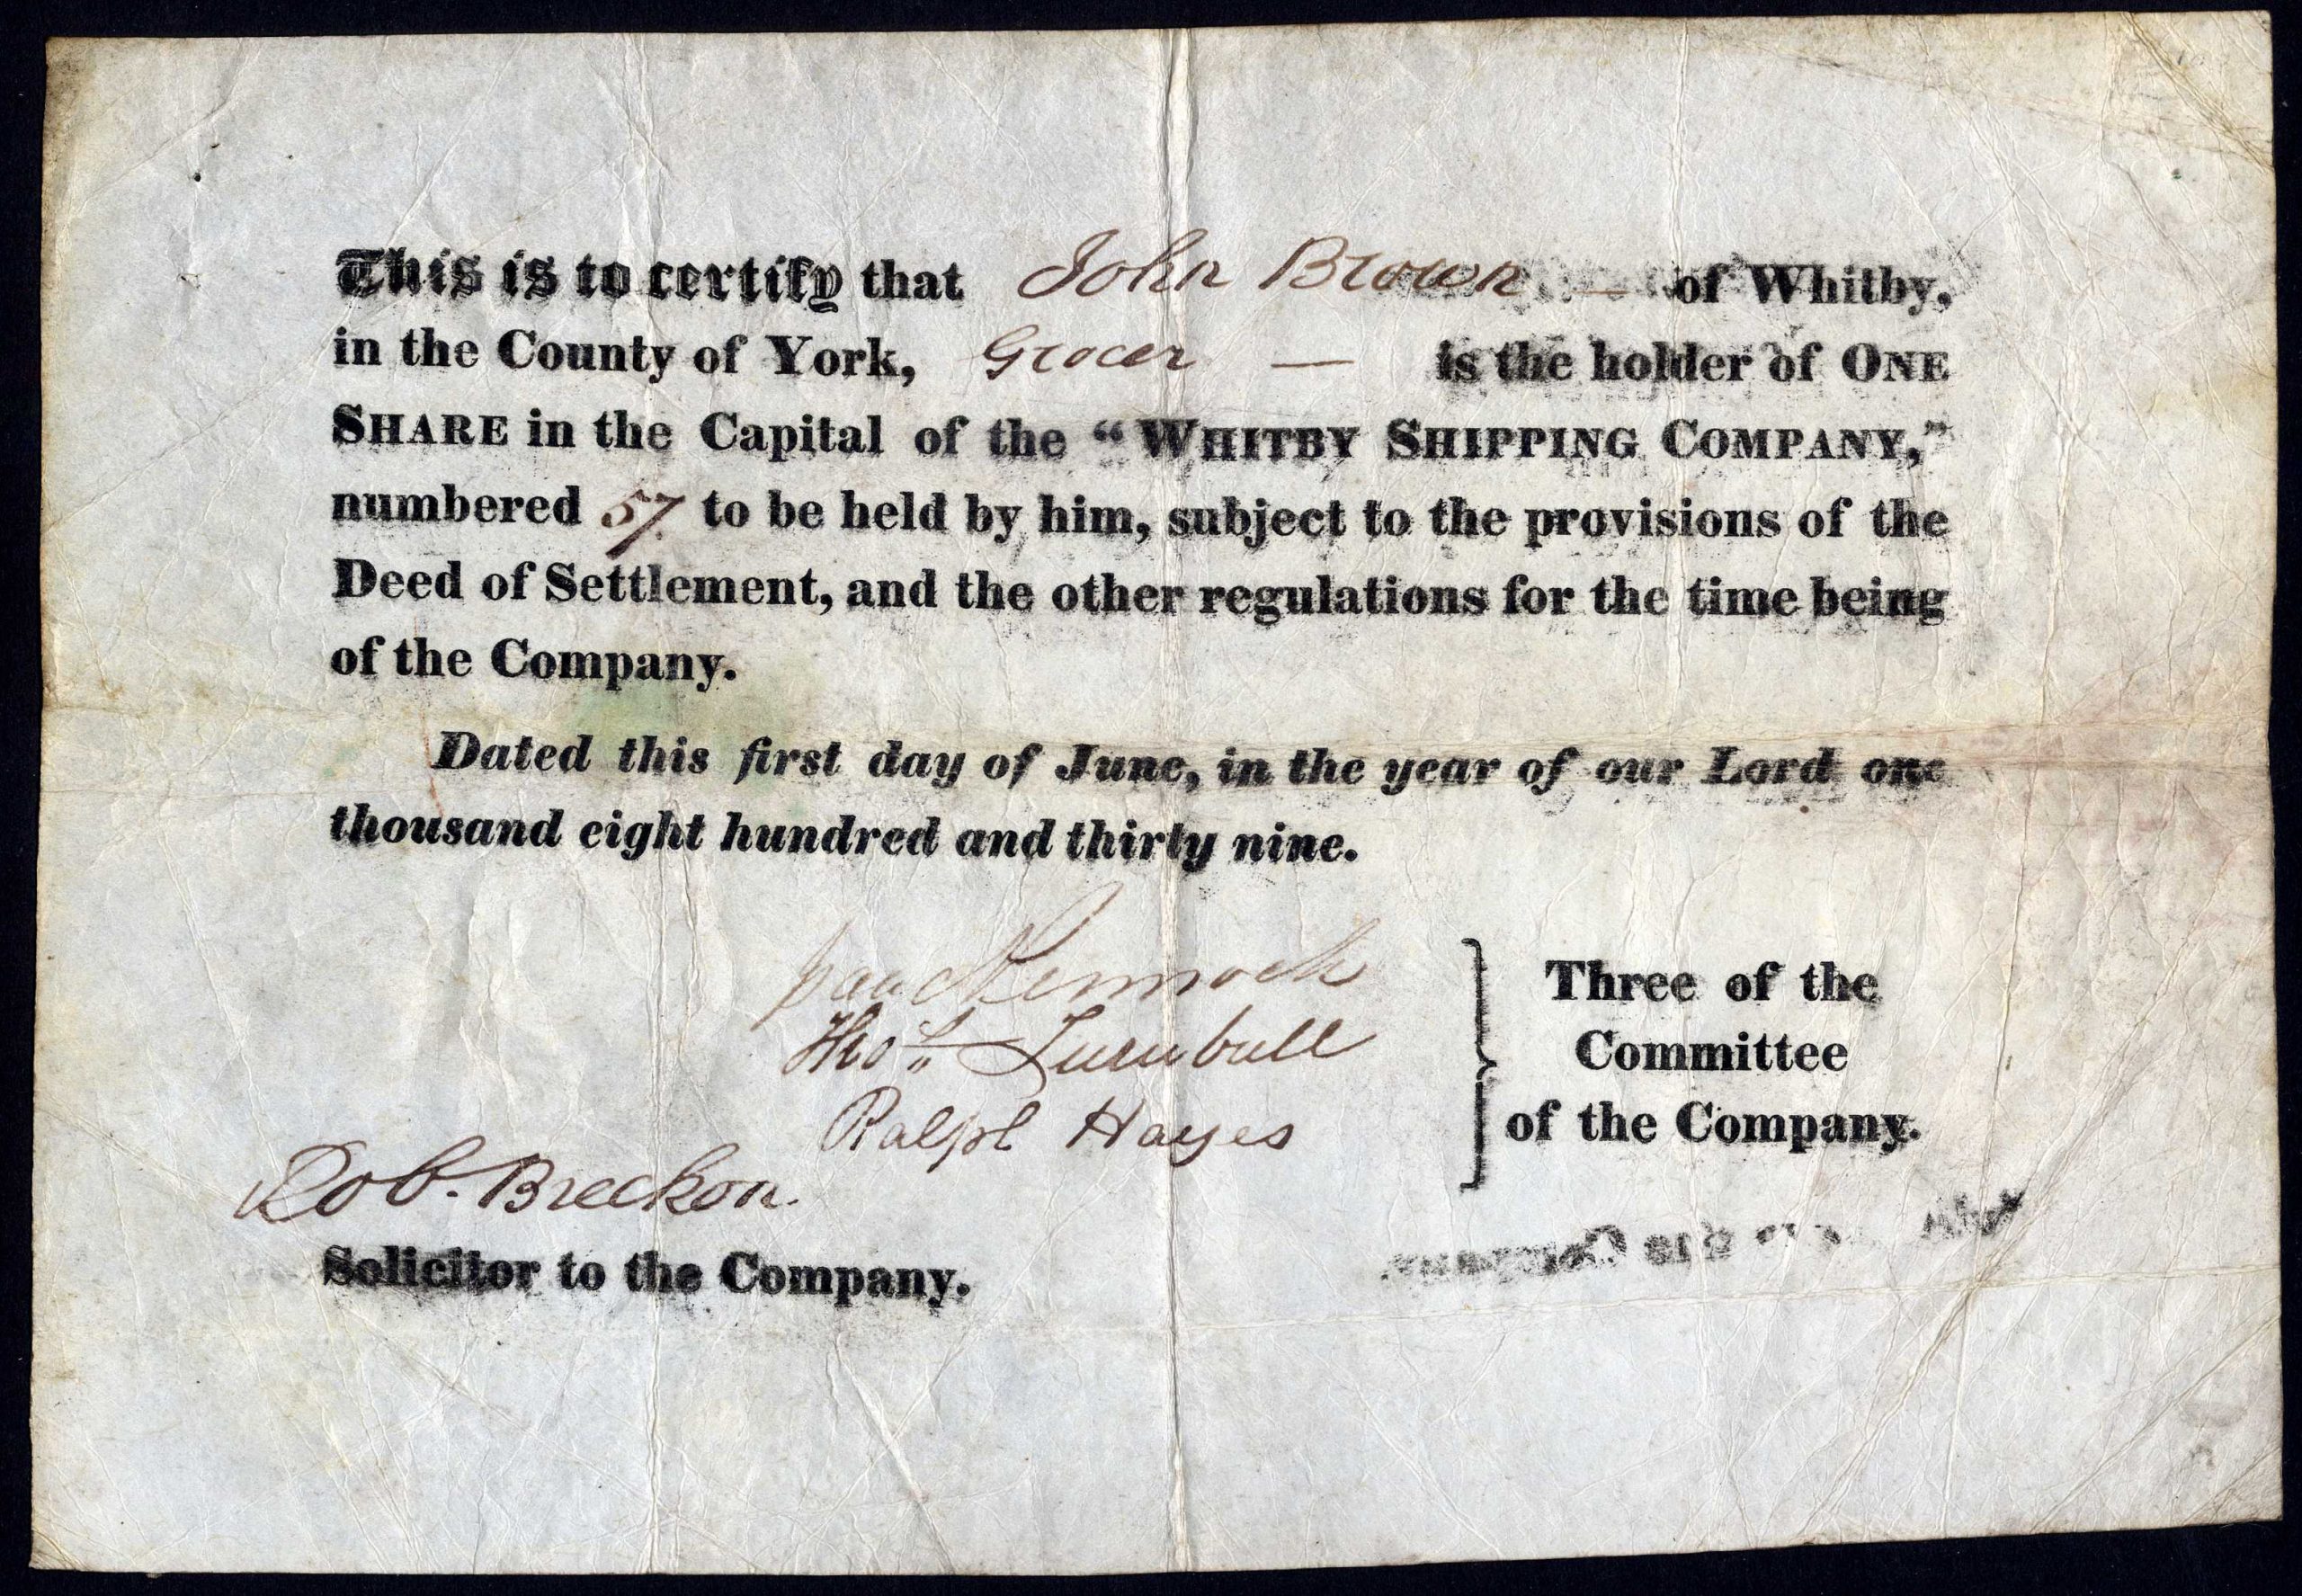 This is to certify that John Brown — of Whitby,
in the County of York, Grocer — is the holder of ONE
SHARE in the Capital of the “WHITBY SHIPPING COMPANY,”
numbered 57 to be held by him, subject to the provisions of the
Deed of Settlement, and the other regulations for the time being
of the Company.
Dated this first day of June, in the year of our Lord one
thousand eight hundred and thirty nine.
Thos. Turnbull
Ralph Hayes
Three of the
Committee
of the Company.
Rob. Breckon.
Solicitor to the Company.